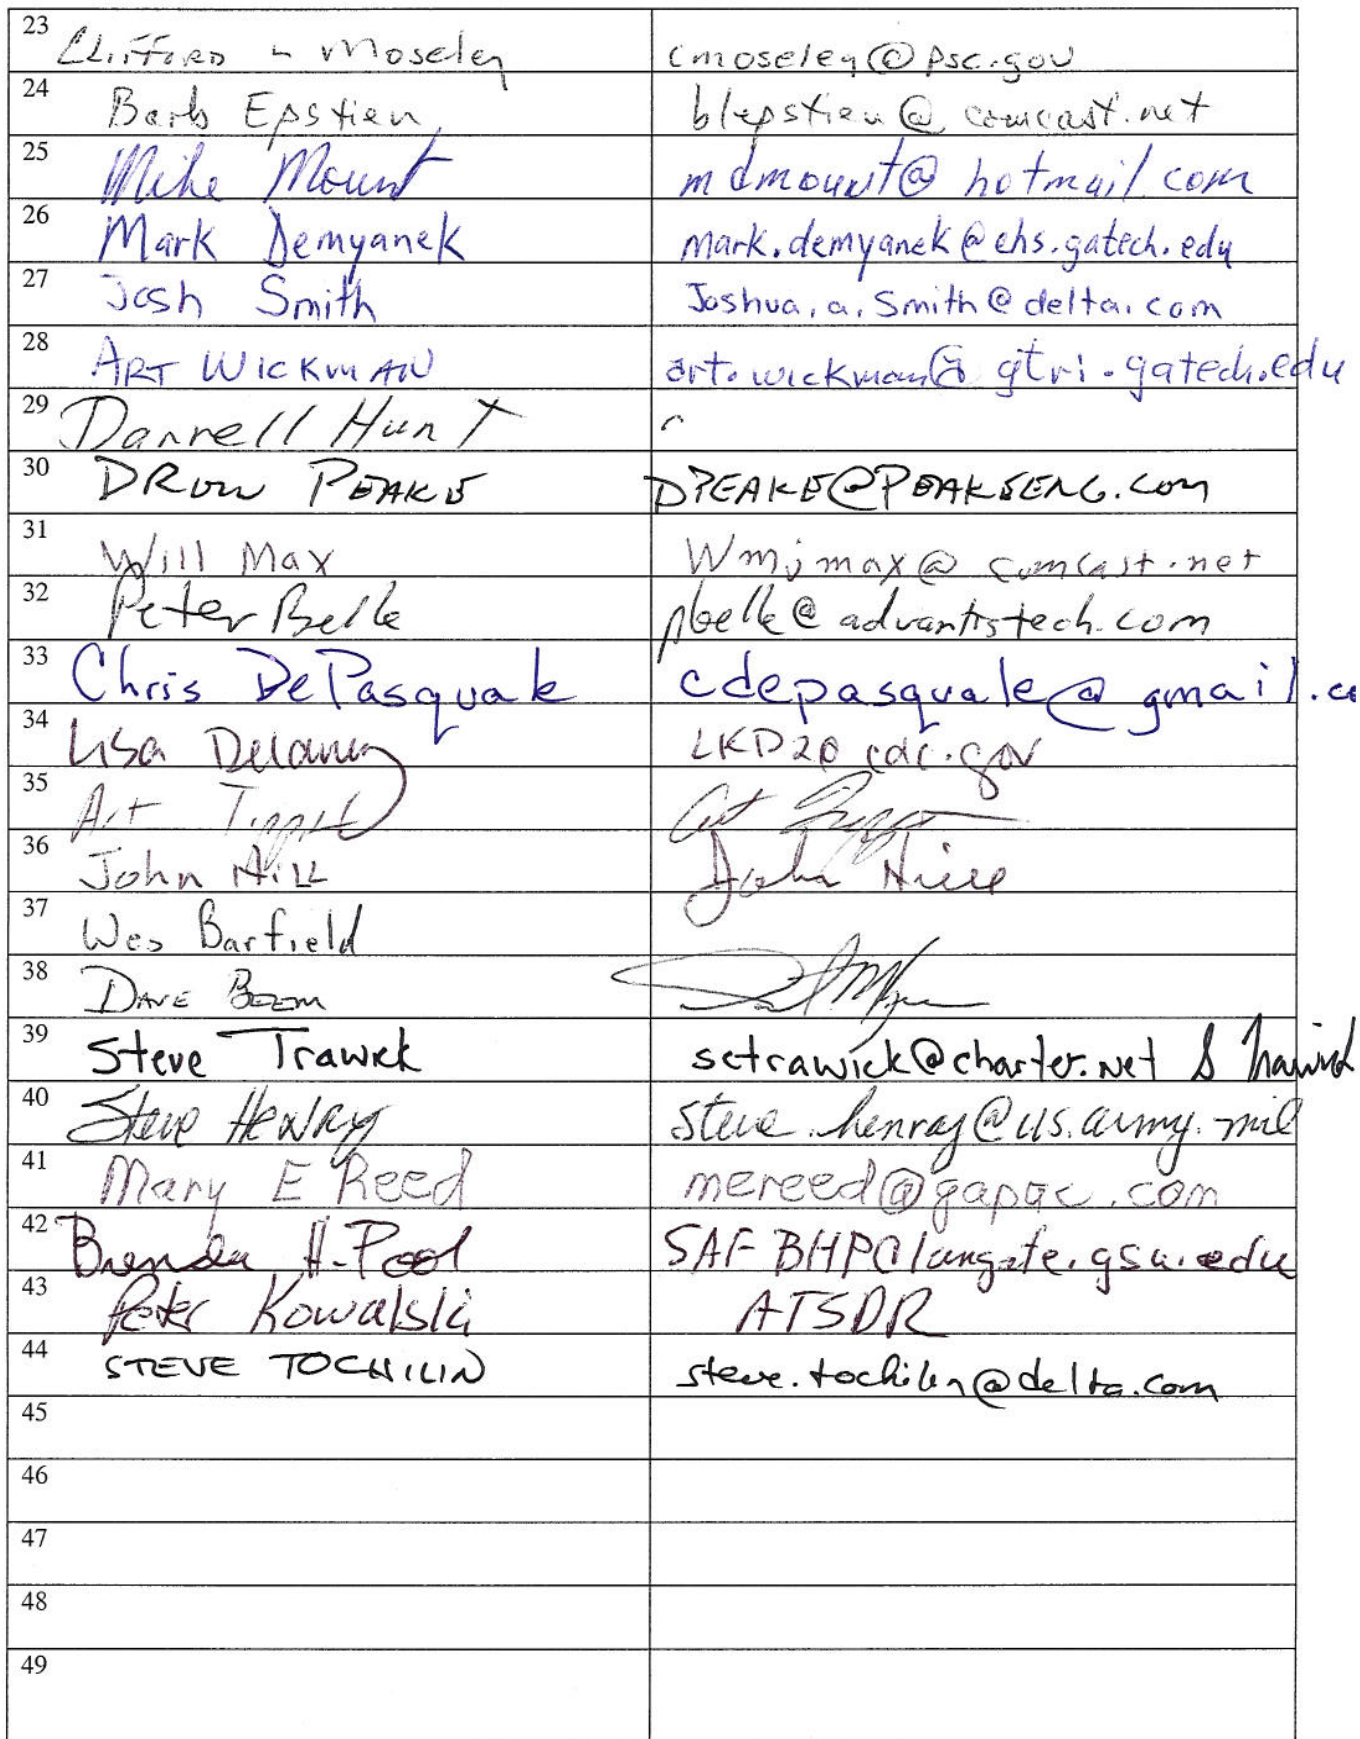 23 Clifford L Moseley cmoseley@psc.gov
24 Barb Epstien blepstien@comcast.net
25 Mike Mount mdmount@hotmail.com
26 Mark Demyanek mark.demyanek@ehs.gatech.edu
27 Josh Smith Joshua.a.Smith@delta.com
28 ART WICKMAN art.wickman@gtri.gatech.edu
29 Darrell Hunt
30 DREW PEAKE DPEAKE@PEAKEENG.COM
31 Will Max Wmjmax@comcast.net
32 Peter Belle pbelle@advantistech.com
33 Chris DePasquale cdepasquale@gmail.co
34 Lisa Delaney LKD2@cdc.gov
35 Art
36 John Hill John Hill
37 Wes Barfield
38 DAVE BEEM
39 Steve Trawick setrawick@charter.net S Trawick
40 Steve Henry steve.henry@us.army.mil
41 Mary E Reed mereed@gapac.com
42 Brenda H. Pool SAFBHP@langate.gsu.edu
43 Peter Kowalski ATSDR
44 STEVE TOCHILIN steve.tochilin@delta.com
45
46
47
48
49